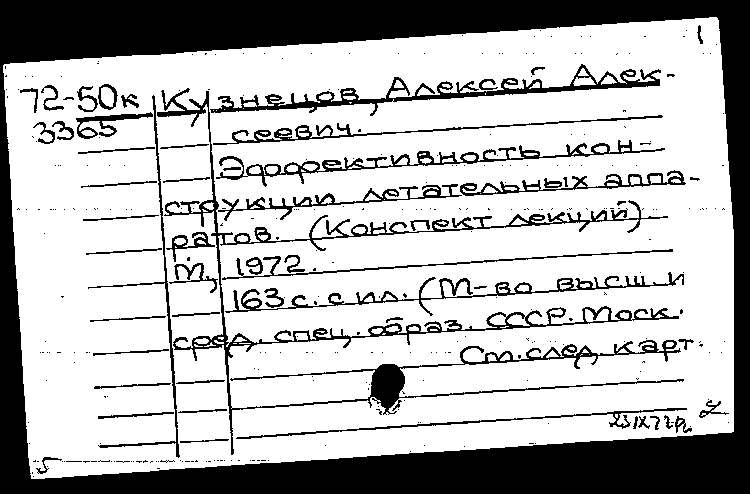 1
72-50к Кузнецов, Алексей Алек-
3365 сеевич.
Эффективность кон-
струкции летательных аппа-
ратов. (Конспект лекций).
М., 1972.
163 с. с ил. (М-во высш. и
сред. спец. образ. СССР. Моск.
См. след. карт.
5